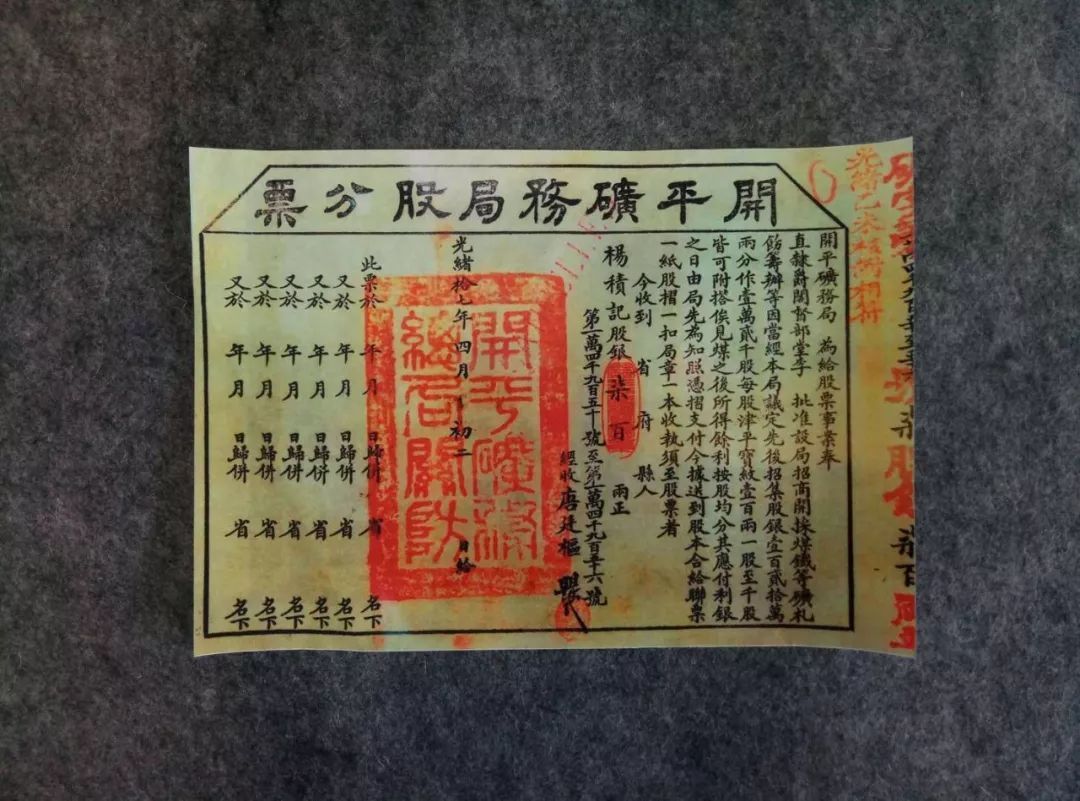 開平礦務局股分票
光緒乙未
開平礦務局 為給股票事案奉
直隸爵閣督部堂李 批准設局招商開採煤鐵等礦札
飭籌辦等因當經本局議定先後招集股銀壹百貳拾萬
兩分作壹萬貳千股每股津平寶紋壹百兩一股至千股
皆可附搭俟見煤之後所得餘利按股均分其應付利銀
之日由局先為知照憑摺支付今據送到股本合給聯票
一紙股摺一扣局章一本收執須至股票者
今收到 省 府 縣人
楊積記股銀 柒百 兩正
第一萬四千九百五十號至第一萬四千九百五十六號
經收唐廷樞
開平礦務
總局關防
光緒拾七年四月初二日給
此票於 年 月 日歸併 省 名下
又於 年 月 日歸併 省 名下
又於 年 月 日歸併 省 名下
又於 年 月 日歸併 省 名下
又於 年 月 日歸併 省 名下
又於 年 月 日歸併 省 名下